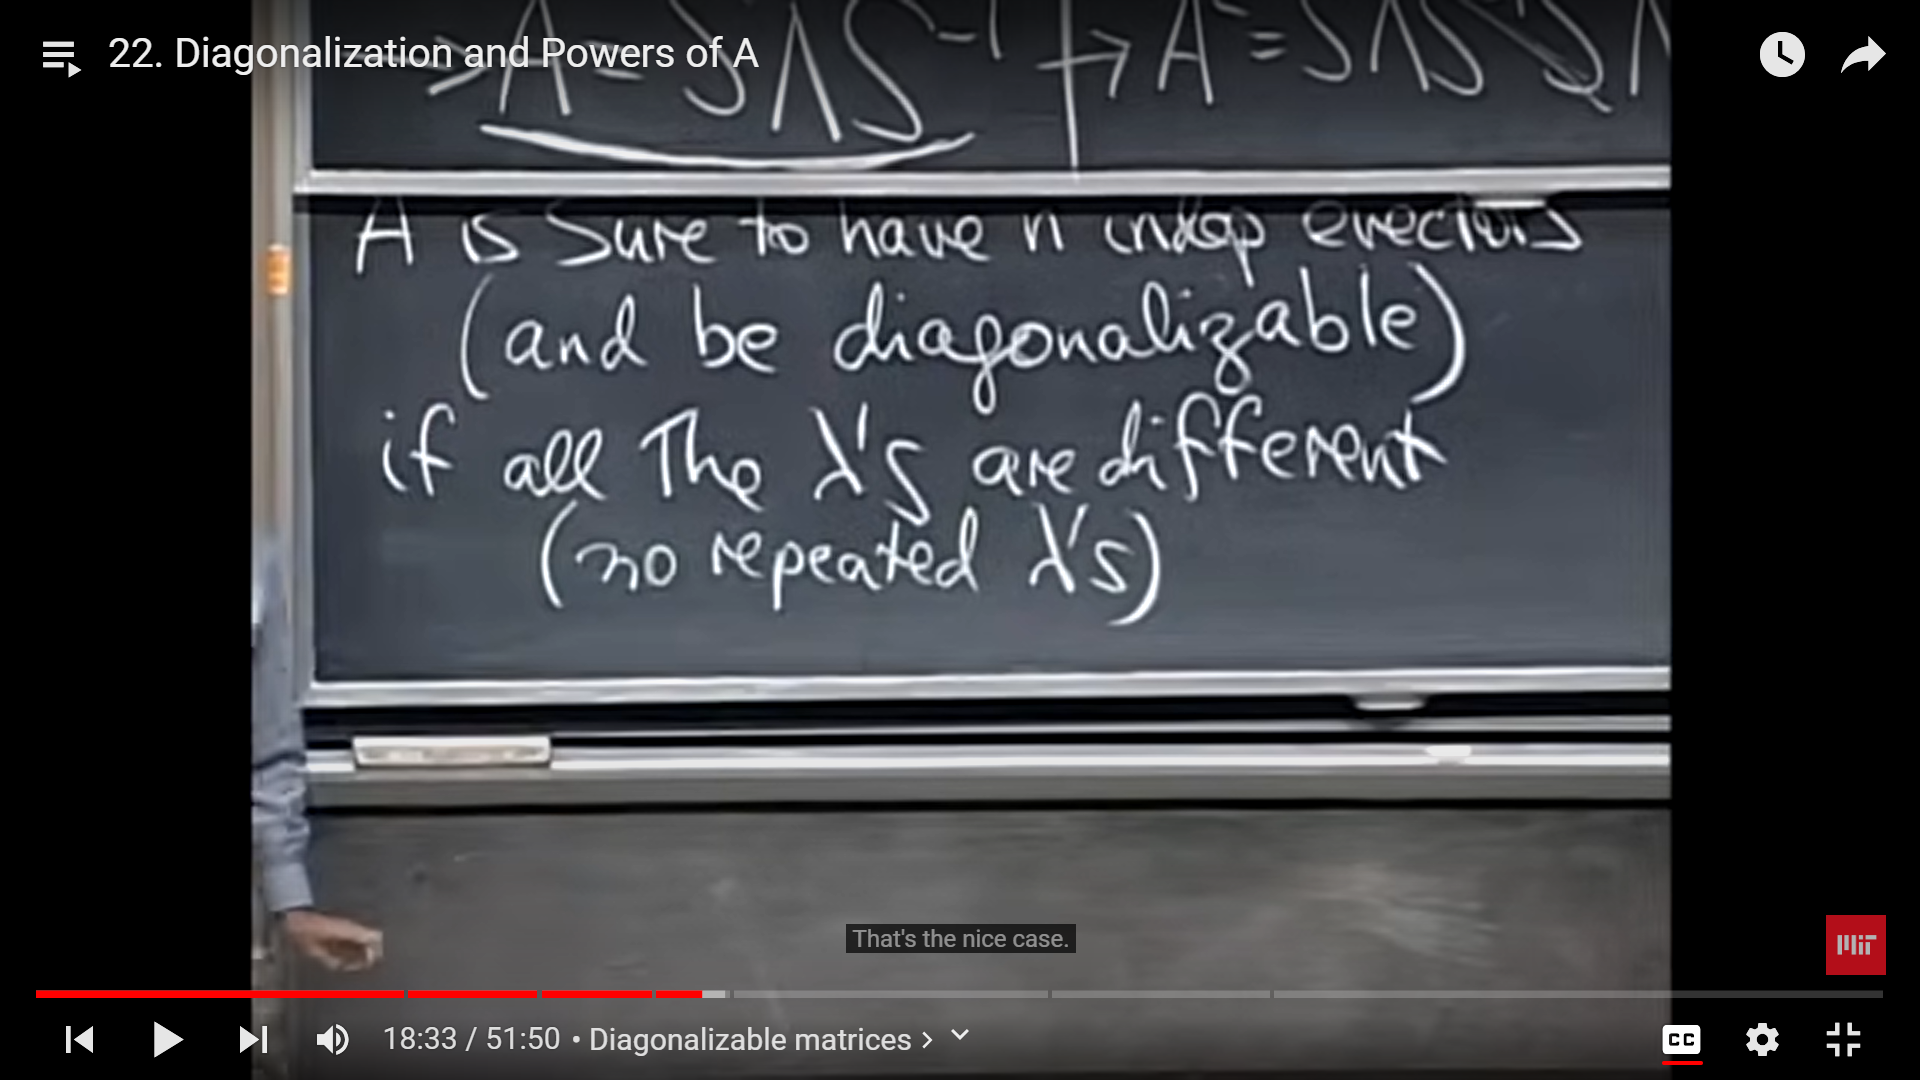 22. Diagonalization and Powers of A
→ A = SΛS⁻¹ → A = SΛS⁻¹SΛ
A is sure to have n indep evectors
(and be diagonalizable)
if all the λ's are different
(no repeated λ's)
That's the nice case.
MIT
18:33 / 51:50 • Diagonalizable matrices ›
CC